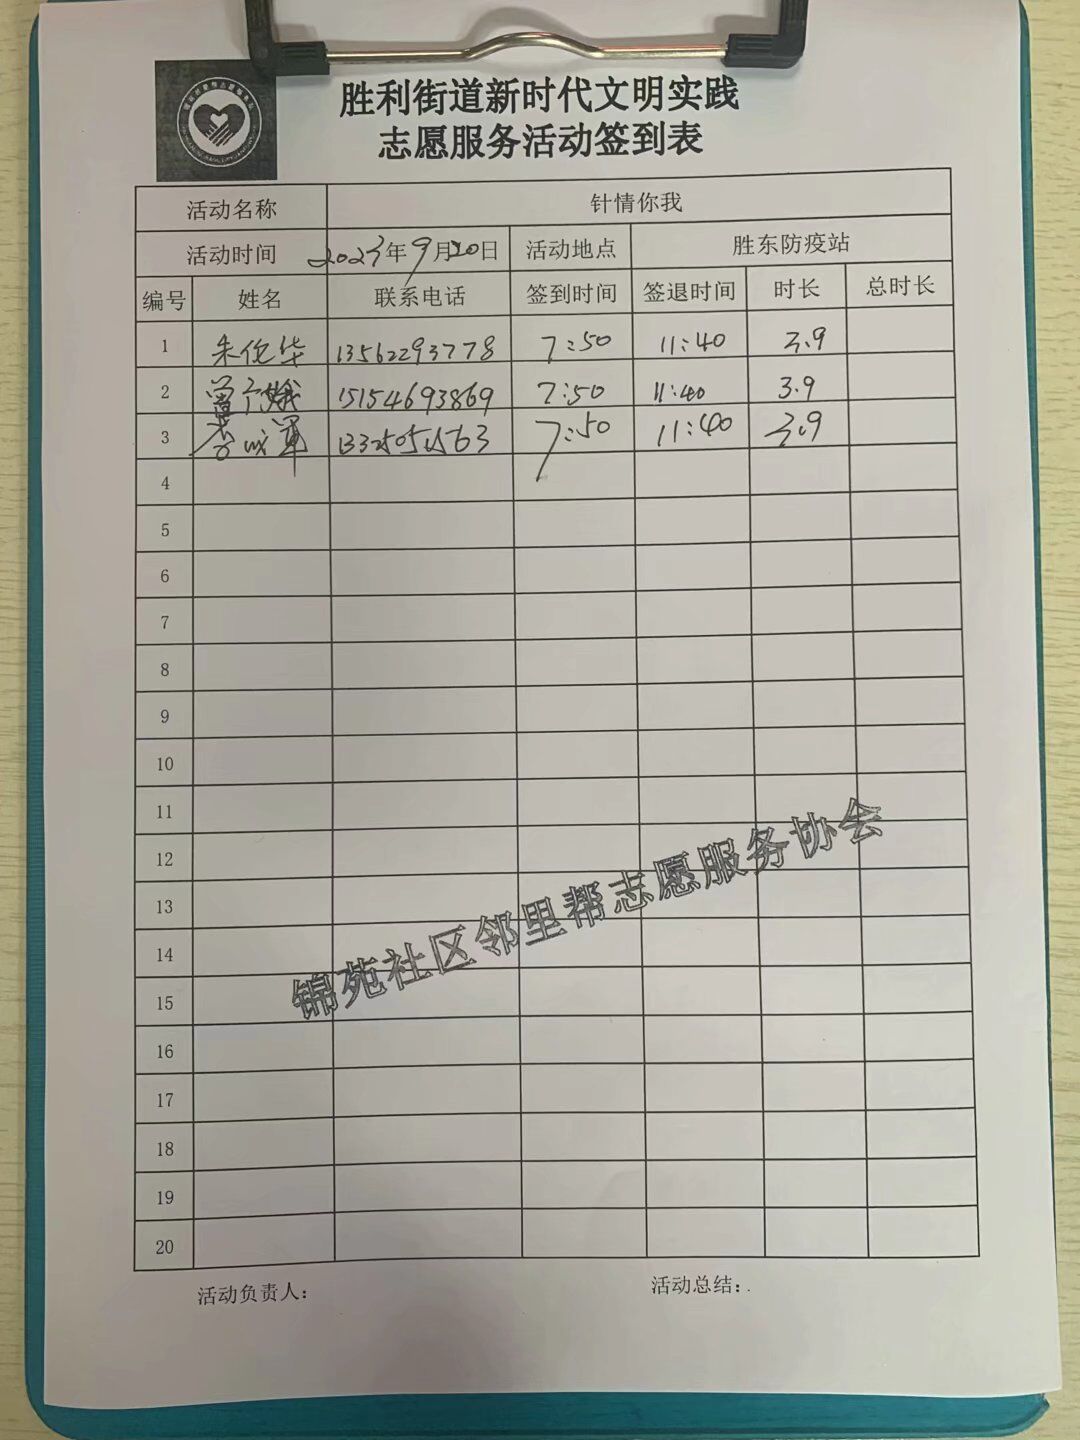 胜利街道新时代文明实践
志愿服务活动签到表
活动名称 针情你我
活动时间 2023年9月20日 活动地点 胜东防疫站
编号 姓名 联系电话 签到时间 签退时间 时长 总时长
1 朱俊华 13562293778 7:50 11:40 3.9
2 15154693869 7:50 11:40 3.9
3 7:50 11:40 3.9
4
5
6
7
8
9
10
11
12
13
14
15
16
17
18
19
20
锦苑社区邻里帮志愿服务协会
活动负责人: 活动总结:.